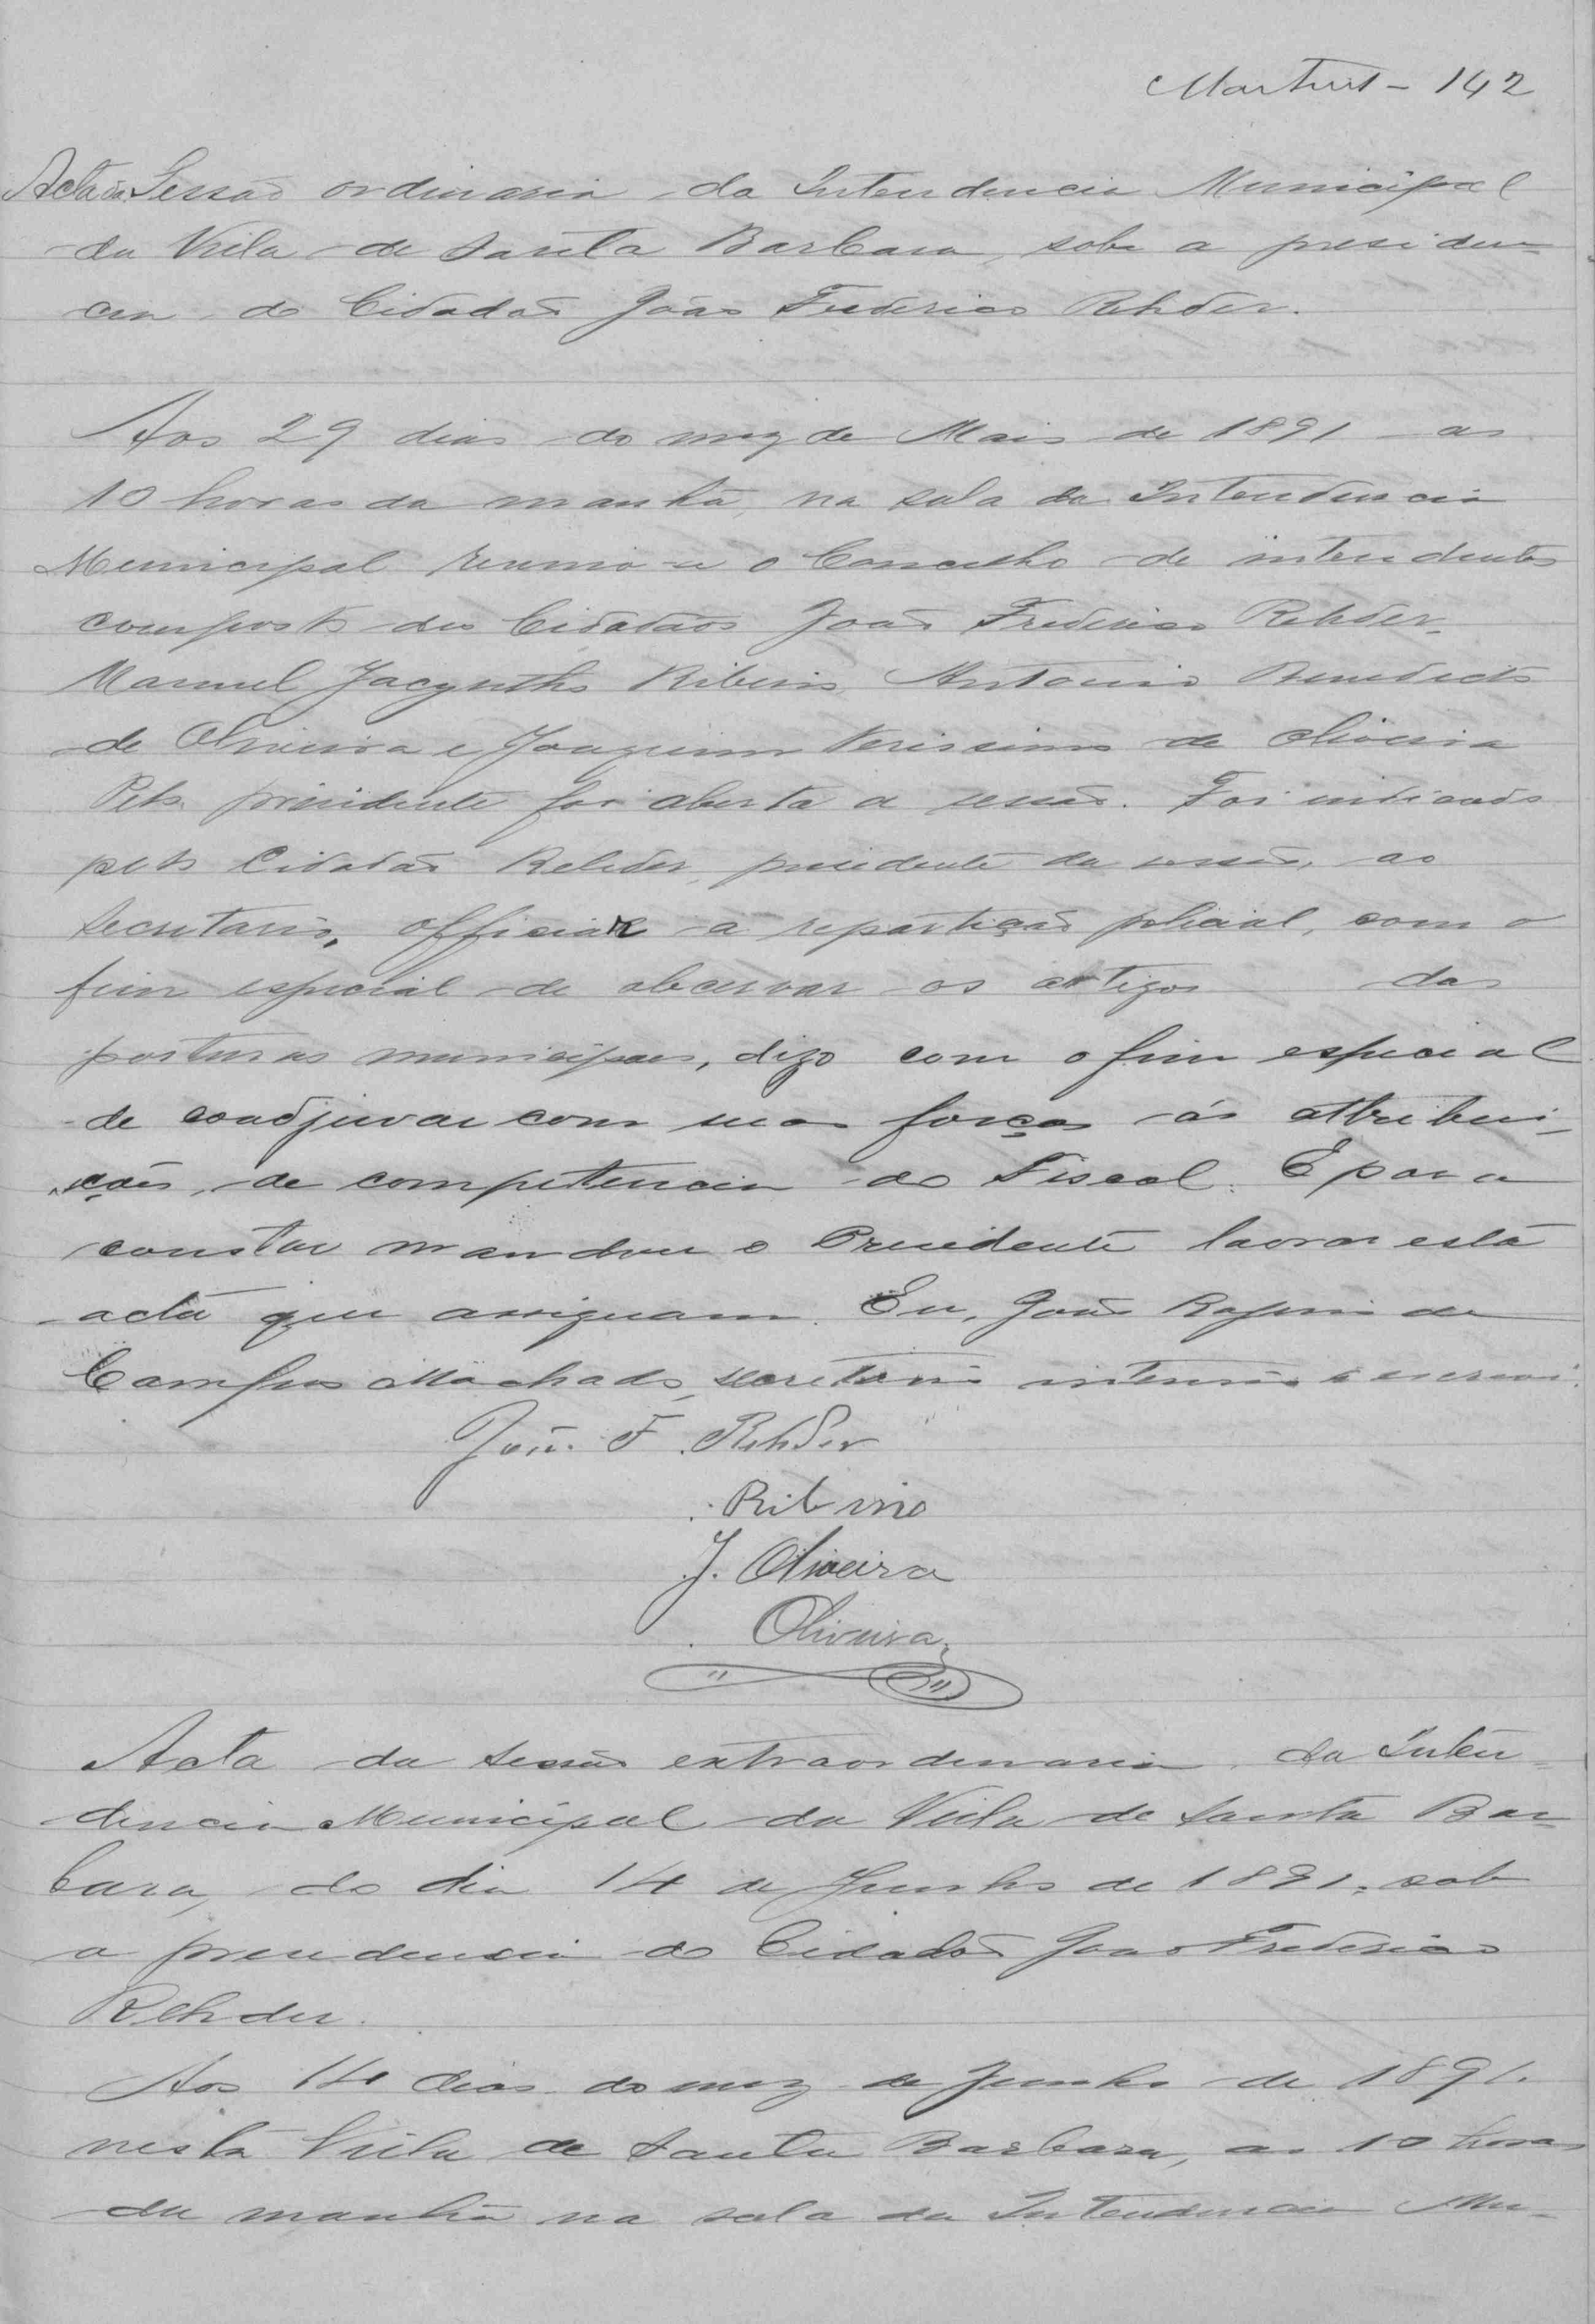 Martins - 142
Acta da Sessão ordinaria da Intendencia Municipal
da Villa de Santa Barbara, sobe a presiden-
cia do Cidadão João Frederico Rehder.
Aos 29 dias do mez de Maio de 1891 as
10 horas da manhã, na sala da Intendencia
Municipal reunio-se o Concelho de intendentes
composto dos Cidadãos João Frederico Rehder,
Manuel Jacyntho Ribeiro, Antonio Benedicto
de Oliveira e Joaquim Verissimo de Oliveira
Pelo presidente foi aberta a sessão. Foi indicado
pelo Cidadão Rehder, presidente da sessão, ao
Secretario, officiar a repartição policial, com o
fim especial de observar os artigos das
posturas municipaes, digo com o fim especial
de coadjuvar com suas forças ás attribui-
ções, de competencia do Fiscal. E para
constar mandou o Presidente lavrar esta
acta que assignam. Eu, João de
Campos Machado, secretario interino o escrevi.
João F. Rehder
Ribeiro
J. Oliveira
Oliveira
Acta da sessão extraordinaria da Inten-
dencia Municipal da Villa de Santa Bar-
bara, do dia 14 de Junho de 1891, sob
a presidencia do Cidadão João Frederico
Rehder.
Aos 14 dias do mez de Junho de 1891.
nesta Villa de Santa Barbara, as 10 horas
da manhã na sala da Intendencia Mu-